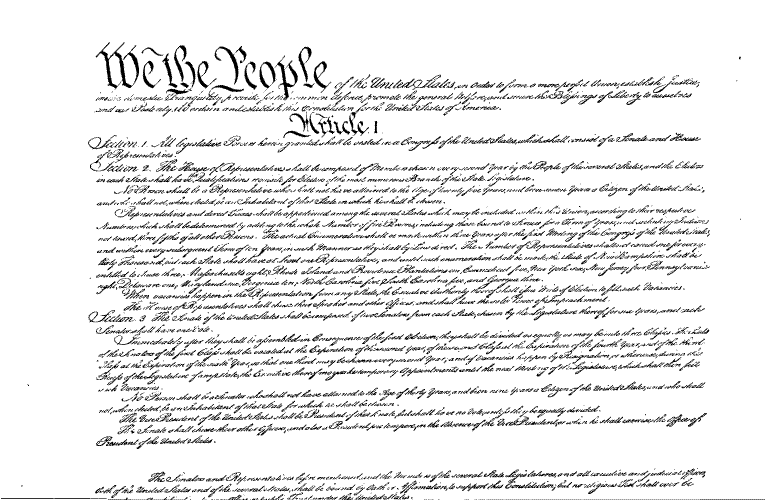 We the People of the United States, in Order to form a more perfect Union, establish Justice,
insure domestic Tranquility, provide for the common defence, promote the general Welfare, and secure the Blessings of Liberty to ourselves
and our Posterity, do ordain and establish this Constitution for the United States of America.
Article I
Section 1. All legislative Powers herein granted shall be vested in a Congress of the United States, which shall consist of a Senate and House
of Representatives.
Section 2. The House of Representatives shall be composed of Members chosen every second Year by the People of the several States, and the Electors
in each State shall have the Qualifications requisite for Electors of the most numerous Branch of the State Legislature.
No Person shall be a Representative who shall not have attained to the Age of twenty five Years, and been seven Years a Citizen of the United States,
and who shall not, when elected, be an Inhabitant of that State in which he shall be chosen.
Representatives and direct Taxes shall be apportioned among the several States which may be included within this Union, according to their respective
Numbers, which shall be determined by adding to the whole Number of free Persons, including those bound to Service for a Term of Years, and excluding Indians
not taxed, three fifths of all other Persons. The actual Enumeration shall be made within three Years after the first Meeting of the Congress of the United States,
and within every subsequent Term of ten Years, in such Manner as they shall by Law direct. The Number of Representatives shall not exceed one for every
thirty Thousand, but each State shall have at Least one Representative; and until such enumeration shall be made, the State of New Hampshire shall be
entitled to chuse three, Massachusetts eight, Rhode Island and Providence Plantations one, Connecticut five, New York six, New Jersey four, Pennsylvania
eight, Delaware one, Maryland six, Virginia ten, North Carolina five, South Carolina five, and Georgia three.
When vacancies happen in the Representation from any State, the Executive Authority thereof shall issue Writs of Election to fill such Vacancies.
The House of Representatives shall chuse their Speaker and other Officers; and shall have the sole Power of Impeachment.
Section 3. The Senate of the United States shall be composed of two Senators from each State, chosen by the Legislature thereof, for six Years; and each
Senator shall have one Vote.
Immediately after they shall be assembled in Consequence of the first Election, they shall be divided as equally as may be into three Classes. The Seats
of the Senators of the first Class shall be vacated at the Expiration of the second Year, of the second Class at the Expiration of the fourth Year, and of the third
Class at the Expiration of the sixth Year, so that one third may be chosen every second Year; and if Vacancies happen by Resignation, or otherwise, during the
Recess of the Legislature of any State, the Executive thereof may make temporary Appointments until the next Meeting of the Legislature, which shall then fill
such Vacancies.
No Person shall be a Senator who shall not have attained to the Age of thirty Years, and been nine Years a Citizen of the United States, and who shall
not, when elected, be an Inhabitant of that State for which he shall be chosen.
The Vice President of the United States shall be President of the Senate, but shall have no Vote, unless they be equally divided.
The Senate shall chuse their other Officers, and also a President pro tempore, in the Absence of the Vice President, or when he shall exercise the Office of
President of the United States.
The Senators and Representatives before mentioned, and the Members of the several State Legislatures, and all executive and judicial Officers,
both of the United States and of the several States, shall be bound by Oath or Affirmation, to support this Constitution; but no religious Test shall ever be